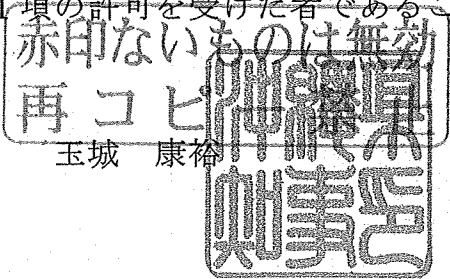 項の許可を受けた者であるこ
赤印ないものは無効
再コピー禁止
玉城　康裕
沖縄県
知事印